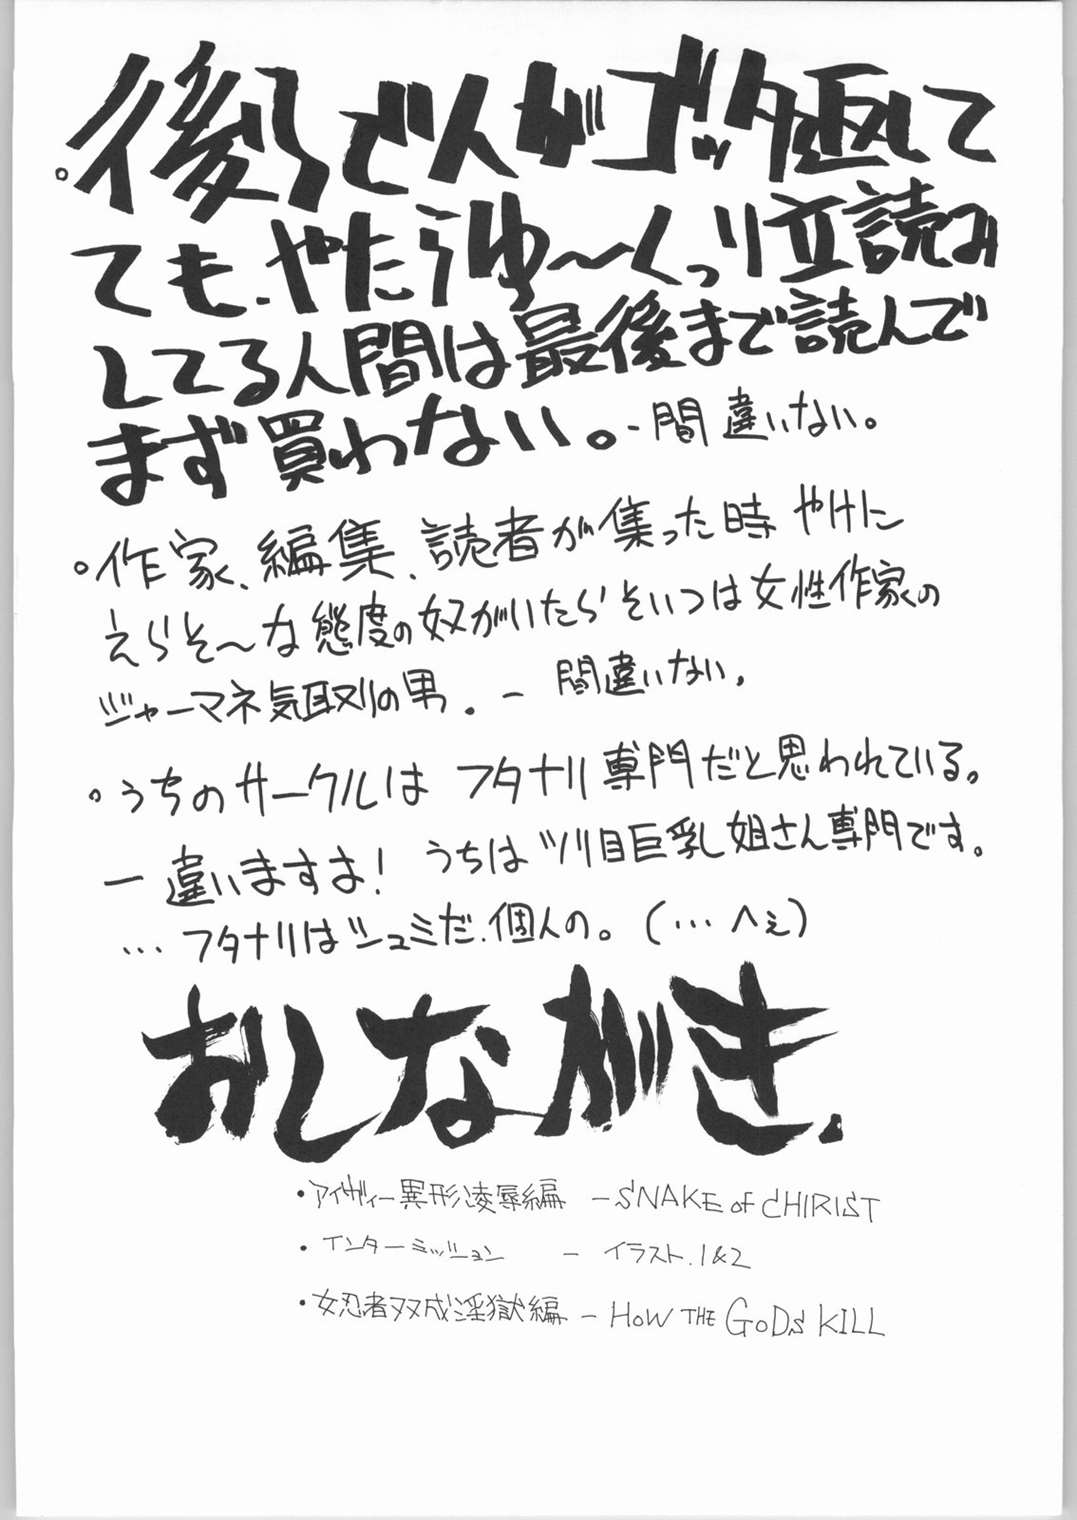 。後ろで人がゴッタ返して
ても、やたらゆ〜くっり立読み
してる人間は最後まで読んで
まず買わない。- 間違いない。
。作家、編集、読者が集った時 やけに
えらそ〜な態度の奴がいたらそいつは女性作家の
ジャーマネ気取りの男。- 間違いない。
。うちのサークルは フタナリ専門だと思われている。
ー違いますよ! うちはツリ目巨乳姐さん専門です。
… フタナリはシュミだ、個人の。(… へぇ)
おしながき.
・アイヴィー異形凌辱編 - SNAKE of CHIRIST
・インターミッション - イラスト.1&2
・女忍者双成淫獄編 - HOW THE GODS KILL